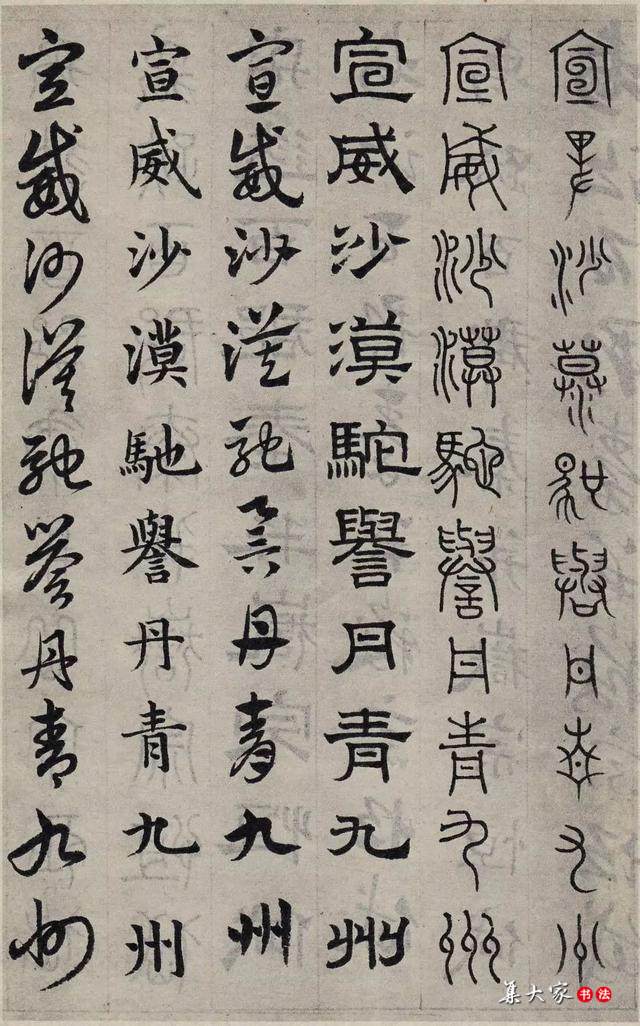 宣威沙漠馳譽丹青九州
宣威沙漠馳譽丹青九州
宣威沙漠駝譽丹青九州
宣威沙漠馳譽丹青九州
宣威沙漠馳譽丹青九州
宣威沙漠馳譽丹青九州
集大家书法